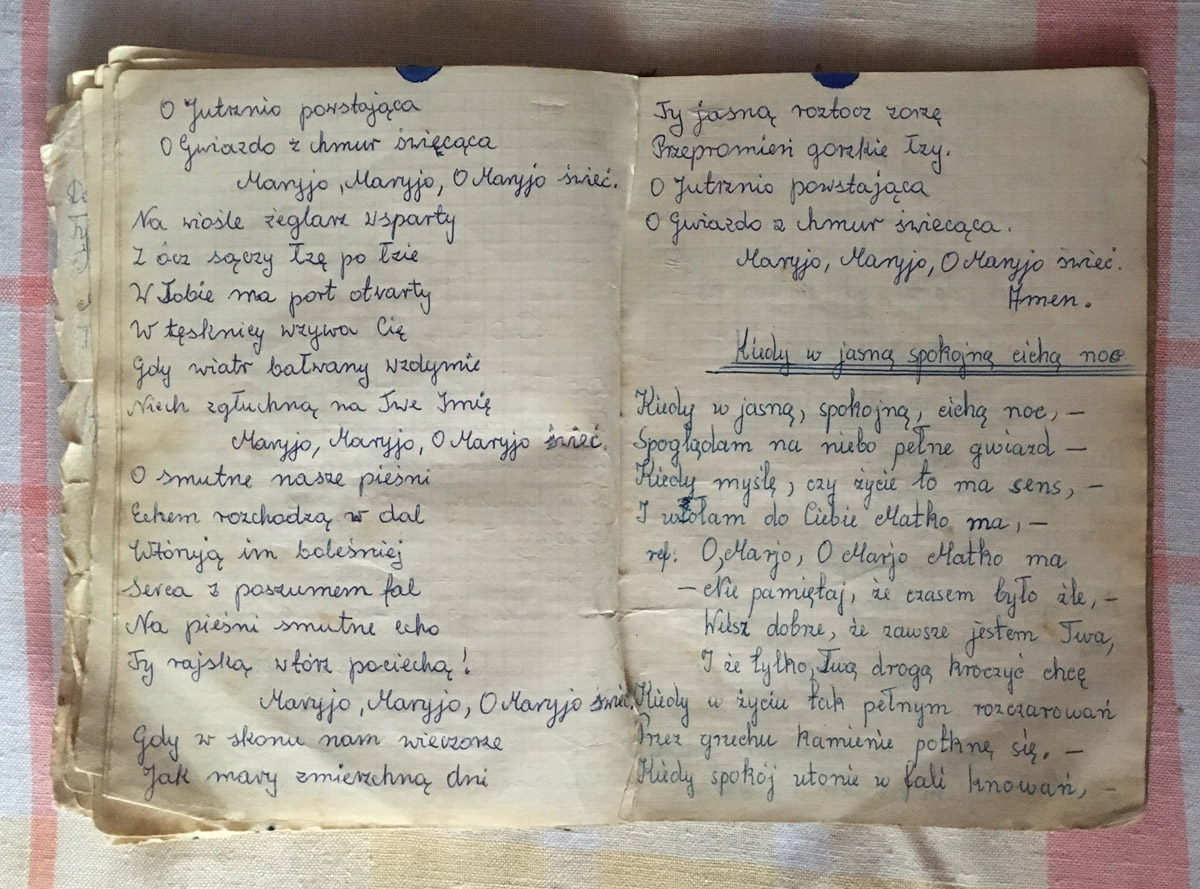 O Jutrznio powstająca
O Gwiazdo z chmur święcąca
Maryjo, Maryjo, O Maryjo świeć.
Na wiośle żeglarz wsparty
Z ócz sączy łzę po łzie
W Tobie ma port otwarty
W tęsknicy wzywa Cię
Gdy wiatr bałwany wzdymie
Niech zgłuchną na Twe Imię
Maryjo, Maryjo, O Maryjo świeć.
O smutne nasze pieśni
Echem rozchodzą w dal
Wtórują im boleśniej
Serca z poszumem fal
Na pieśni smutne echo
Ty rajską wtórz pociechą!
Maryjo, Maryjo, O Maryjo świeć.
Gdy w skonu nam wieczorze
Jak mary zmierzchną dni
Ty jasną roztocz zorzę
Przepromień gorzkie łzy.
O Jutrznio powstająca
O Gwiazdo z chmur świecąca.
Maryjo, Maryjo, O Maryjo świeć.
Amen.
Kiedy w jasną spokojną cichą noc
Kiedy w jasną, spokojną, cichą noc, –
Spoglądam na niebo pełne gwiazd –
Kiedy myślę, czy życie to ma sens, –
I wołam do Ciebie Matko ma, –
ref: O, Marjo, O Marjo Matko ma
– Nie pamiętaj, że czasem było źle, –
Wiesz dobrze, że zawsze jestem Twa,
I że tylko Twą drogą kroczyć chcę
Kiedy w życiu tak pełnym rozczarowań
Przez grzechu kamienie potknę się. –
Kiedy spokój utonie w fali knowań, –